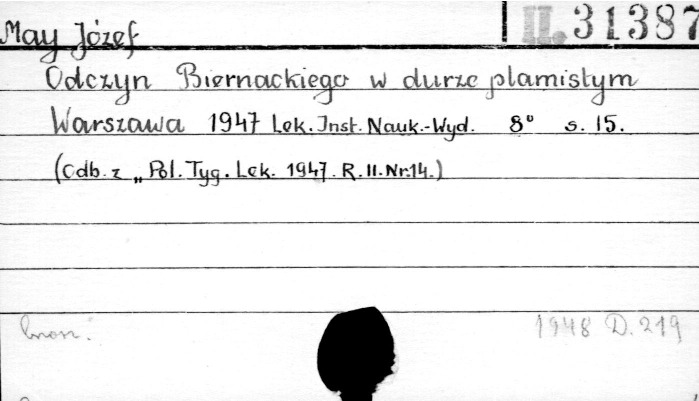 II. 31387
May Józef
Odczyn Biernackiego w durze plamistym
Warszawa 1947 Lek. Inst. Nauk.-Wyd. 8° s. 15.
(Odb. z „Pol. Tyg. Lek. 1947. R. II. Nr. 14.)
1948 D. 219